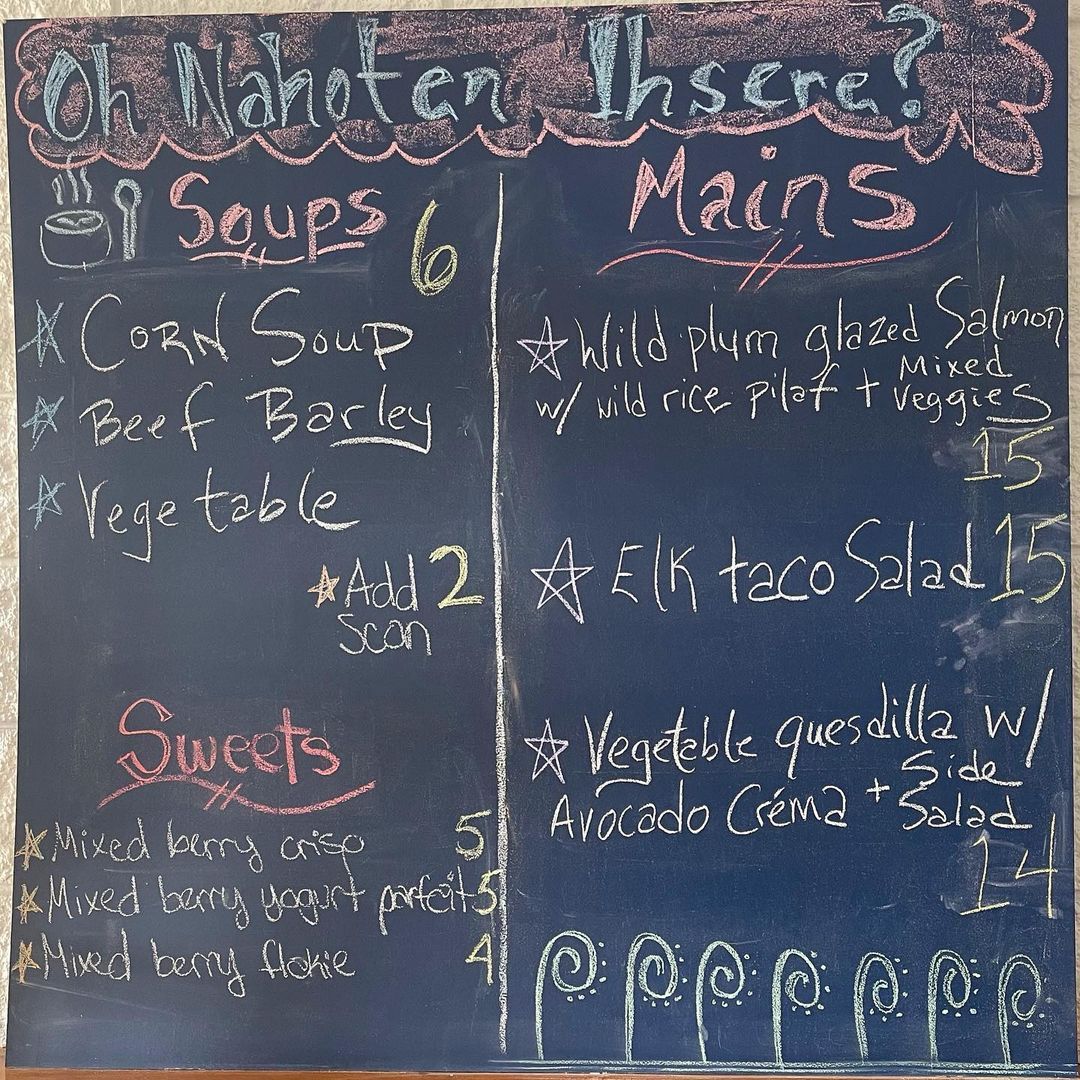 Oh Nahoten Ihsere?
Soups 6
Corn Soup
Beef Barley
Vegetable
Add 2
Scon
Sweets
Mixed berry crisp 5
Mixed berry yogurt parfait 5
Mixed berry flakie 4
Mains
Wild plum glazed Salmon
w/ wild rice pilaf + Mixed
Veggies
15
Elk taco Salad 15
Vegetable quesdilla w/
Avocado Créma + Side
Salad
14